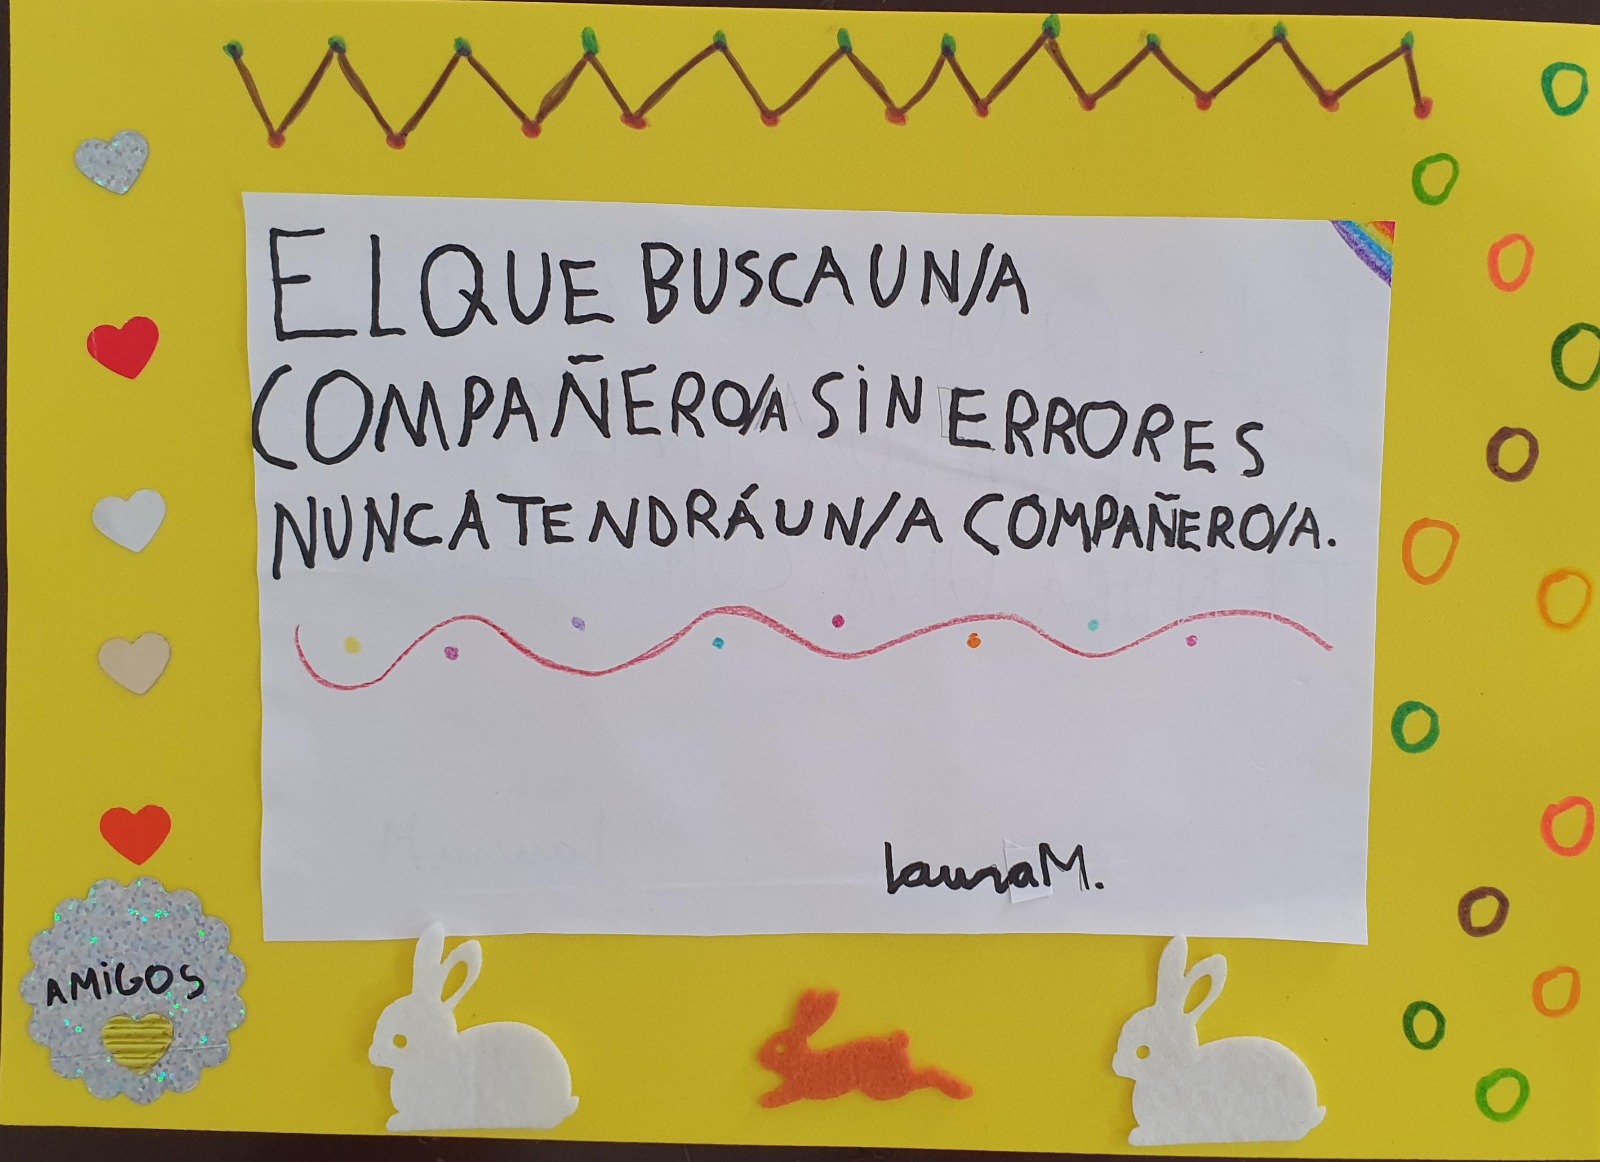 EL QUE BUSCA UN/A
COMPAÑERO/A SIN ERRORES
NUNCA TENDRÁ UN/A COMPAÑERO/A.
Laura M.
AMIGOS